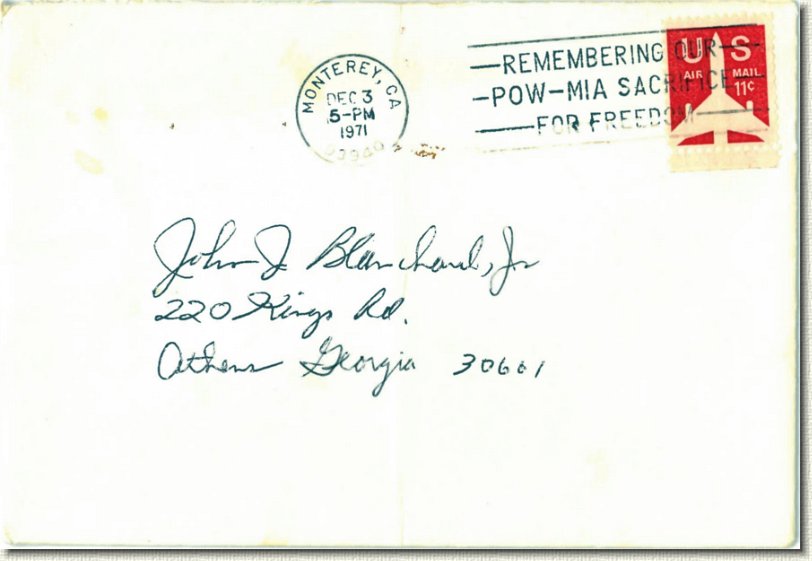 MONTEREY, CA
DEC 3
5-PM
1971
93940
REMEMBERING OUR
POW-MIA SACRIFICE
FOR FREEDOM
U S
AIR MAIL
11¢
John J Blanchard, Jr
220 Kings Rd.
Athens Georgia 30601